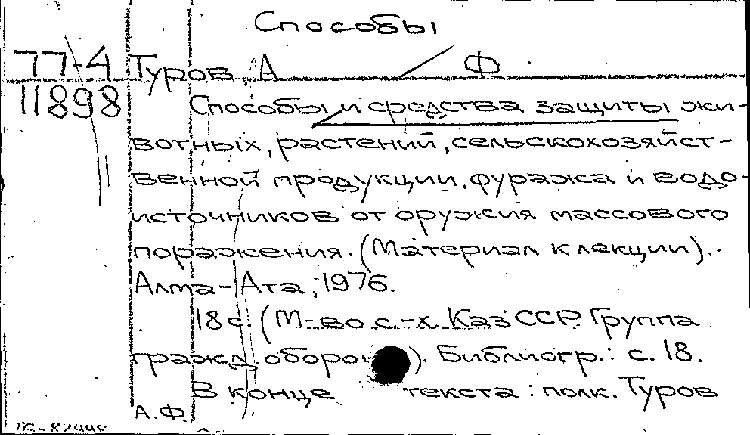 Способы
77-4 Туров А Ф.
11898 Способы и средства защиты жи-
вотных, растений, сельскохозяйст-
венной продукции, фуража и водо-
источников от оружия массового
поражения. (Материал к лекции). -
Алма-Ата, 1976.
18 с. (М-во с.-х. КазССР. Группа
гражд. оборо ). Библиогр.: с. 18.
В конце текста: полк. Туров
А.Ф.